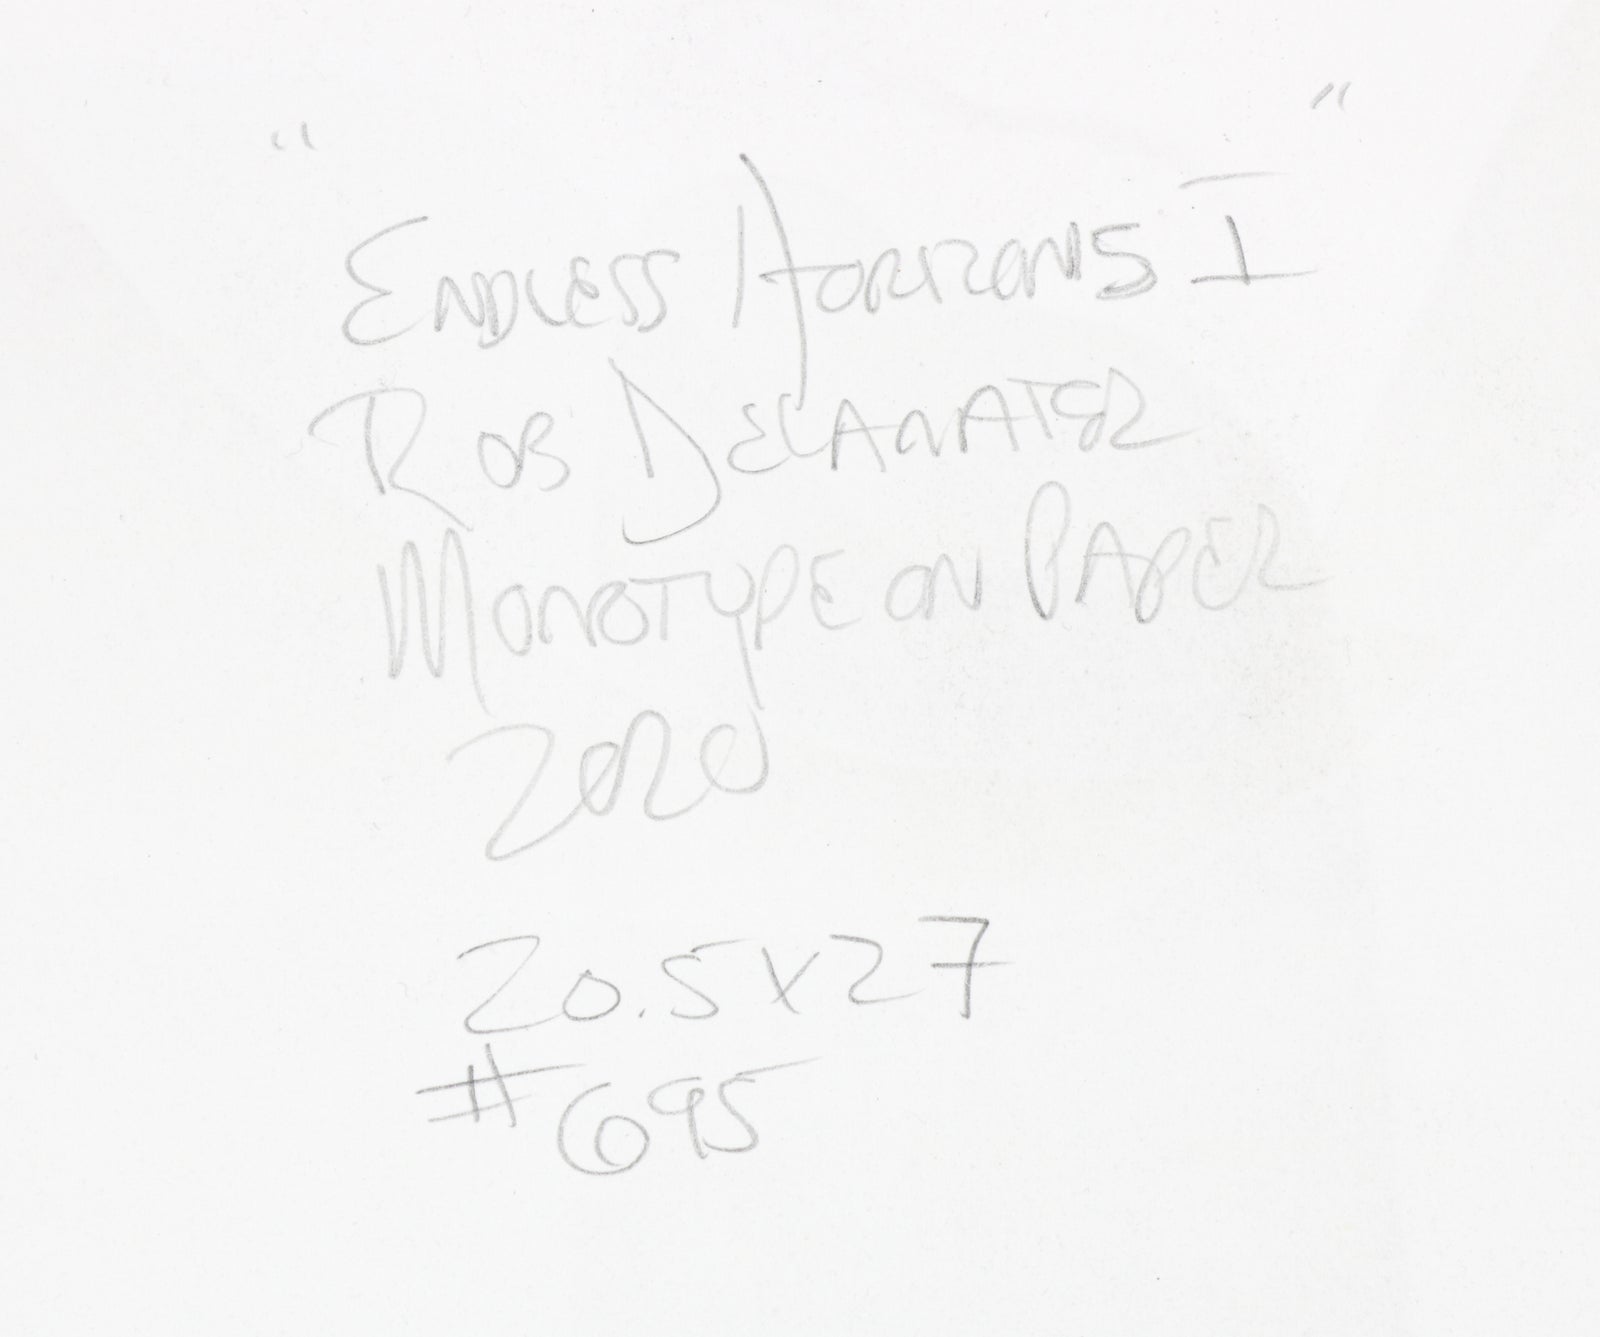 "Endless Horizons I"
Rob Delamater
Monotype on Paper
2020
20.5x27
#695